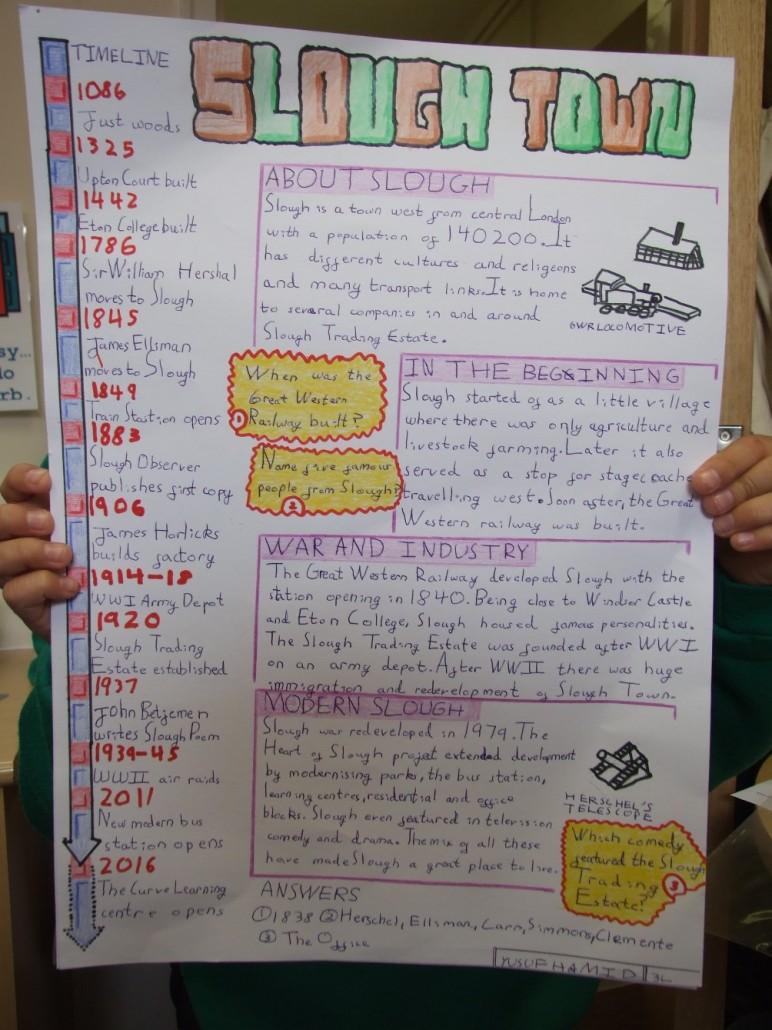 SLOUGH TOWN
TIMELINE
1086
Just woods
1325
Upton Court built
1442
Eton College built
1786
Sir William Hershal
moves to Slough
1845
James Ellsman
moves to Slough
1849
Train Station opens
1883
Slough Observer
publishes first copy
1906
James Horlicks
builds factory
1914-18
WWI Army Depot
1920
Slough Trading
Estate established
1937
John Betjemen
writes Slough Poem
1939-45
WWII air raids
2011
New modern bus
station opens
2016
The Curve Learning
centre opens
ABOUT SLOUGH
Slough is a town west from central London
with a population of 140200. It
has different cultures and religeons
and many transport links. It is home
to several companies in and around
Slough Trading Estate.
GWR LOCOMOTIVE
When was the
Great Western
Railway built?
1
Name five famous
people from Slough?
2
IN THE BEGINNING
Slough started of as a little village
where there was only agriculture and
livestock farming. Later it also
served as a stop for stagecoache
travelling west. Soon after, the Great
Western railway was built.
WAR AND INDUSTRY
The Great Western Railway developed Slough with the
station opening in 1840. Being close to Windsor Castle
and Eton College, Slough housed famous personalities.
The Slough Trading Estate was founded after WWI
on an army depot. After WWII there was huge
immigration and redevelopment of Slough Town.
MODERN SLOUGH
Slough was redeveloped in 1979. The
Heart of Slough projet extended development
by modernising parks, the bus station,
learning centres, residential and office
blocks. Slough even featured in television
comedy and drama. The mix of all these
have made Slough a great place to live.
HERSCHEL'S
TELESCOPE
Which comedy
featured the Slough
Trading
Estate?
3
ANSWERS
① 1838 ② Herschel, Ellsman, Carr, Simmons, Clemente
③ The Office
YUSUF HAMID 3L